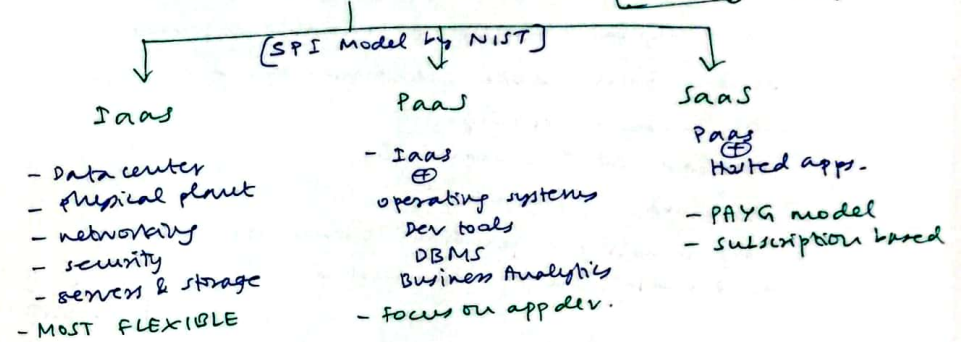 [SPI Model by NIST]
Iaas
- Data center
- physical plant
- networking
- security
- servers & storage
- MOST FLEXIBLE
Paas
- Iaas
⊕
operating systems
Dev tools
DBMS
Business Analytics
- Focus on app dev.
Saas
Paas
⊕
Hosted apps.
- PAYG model
- subscription based